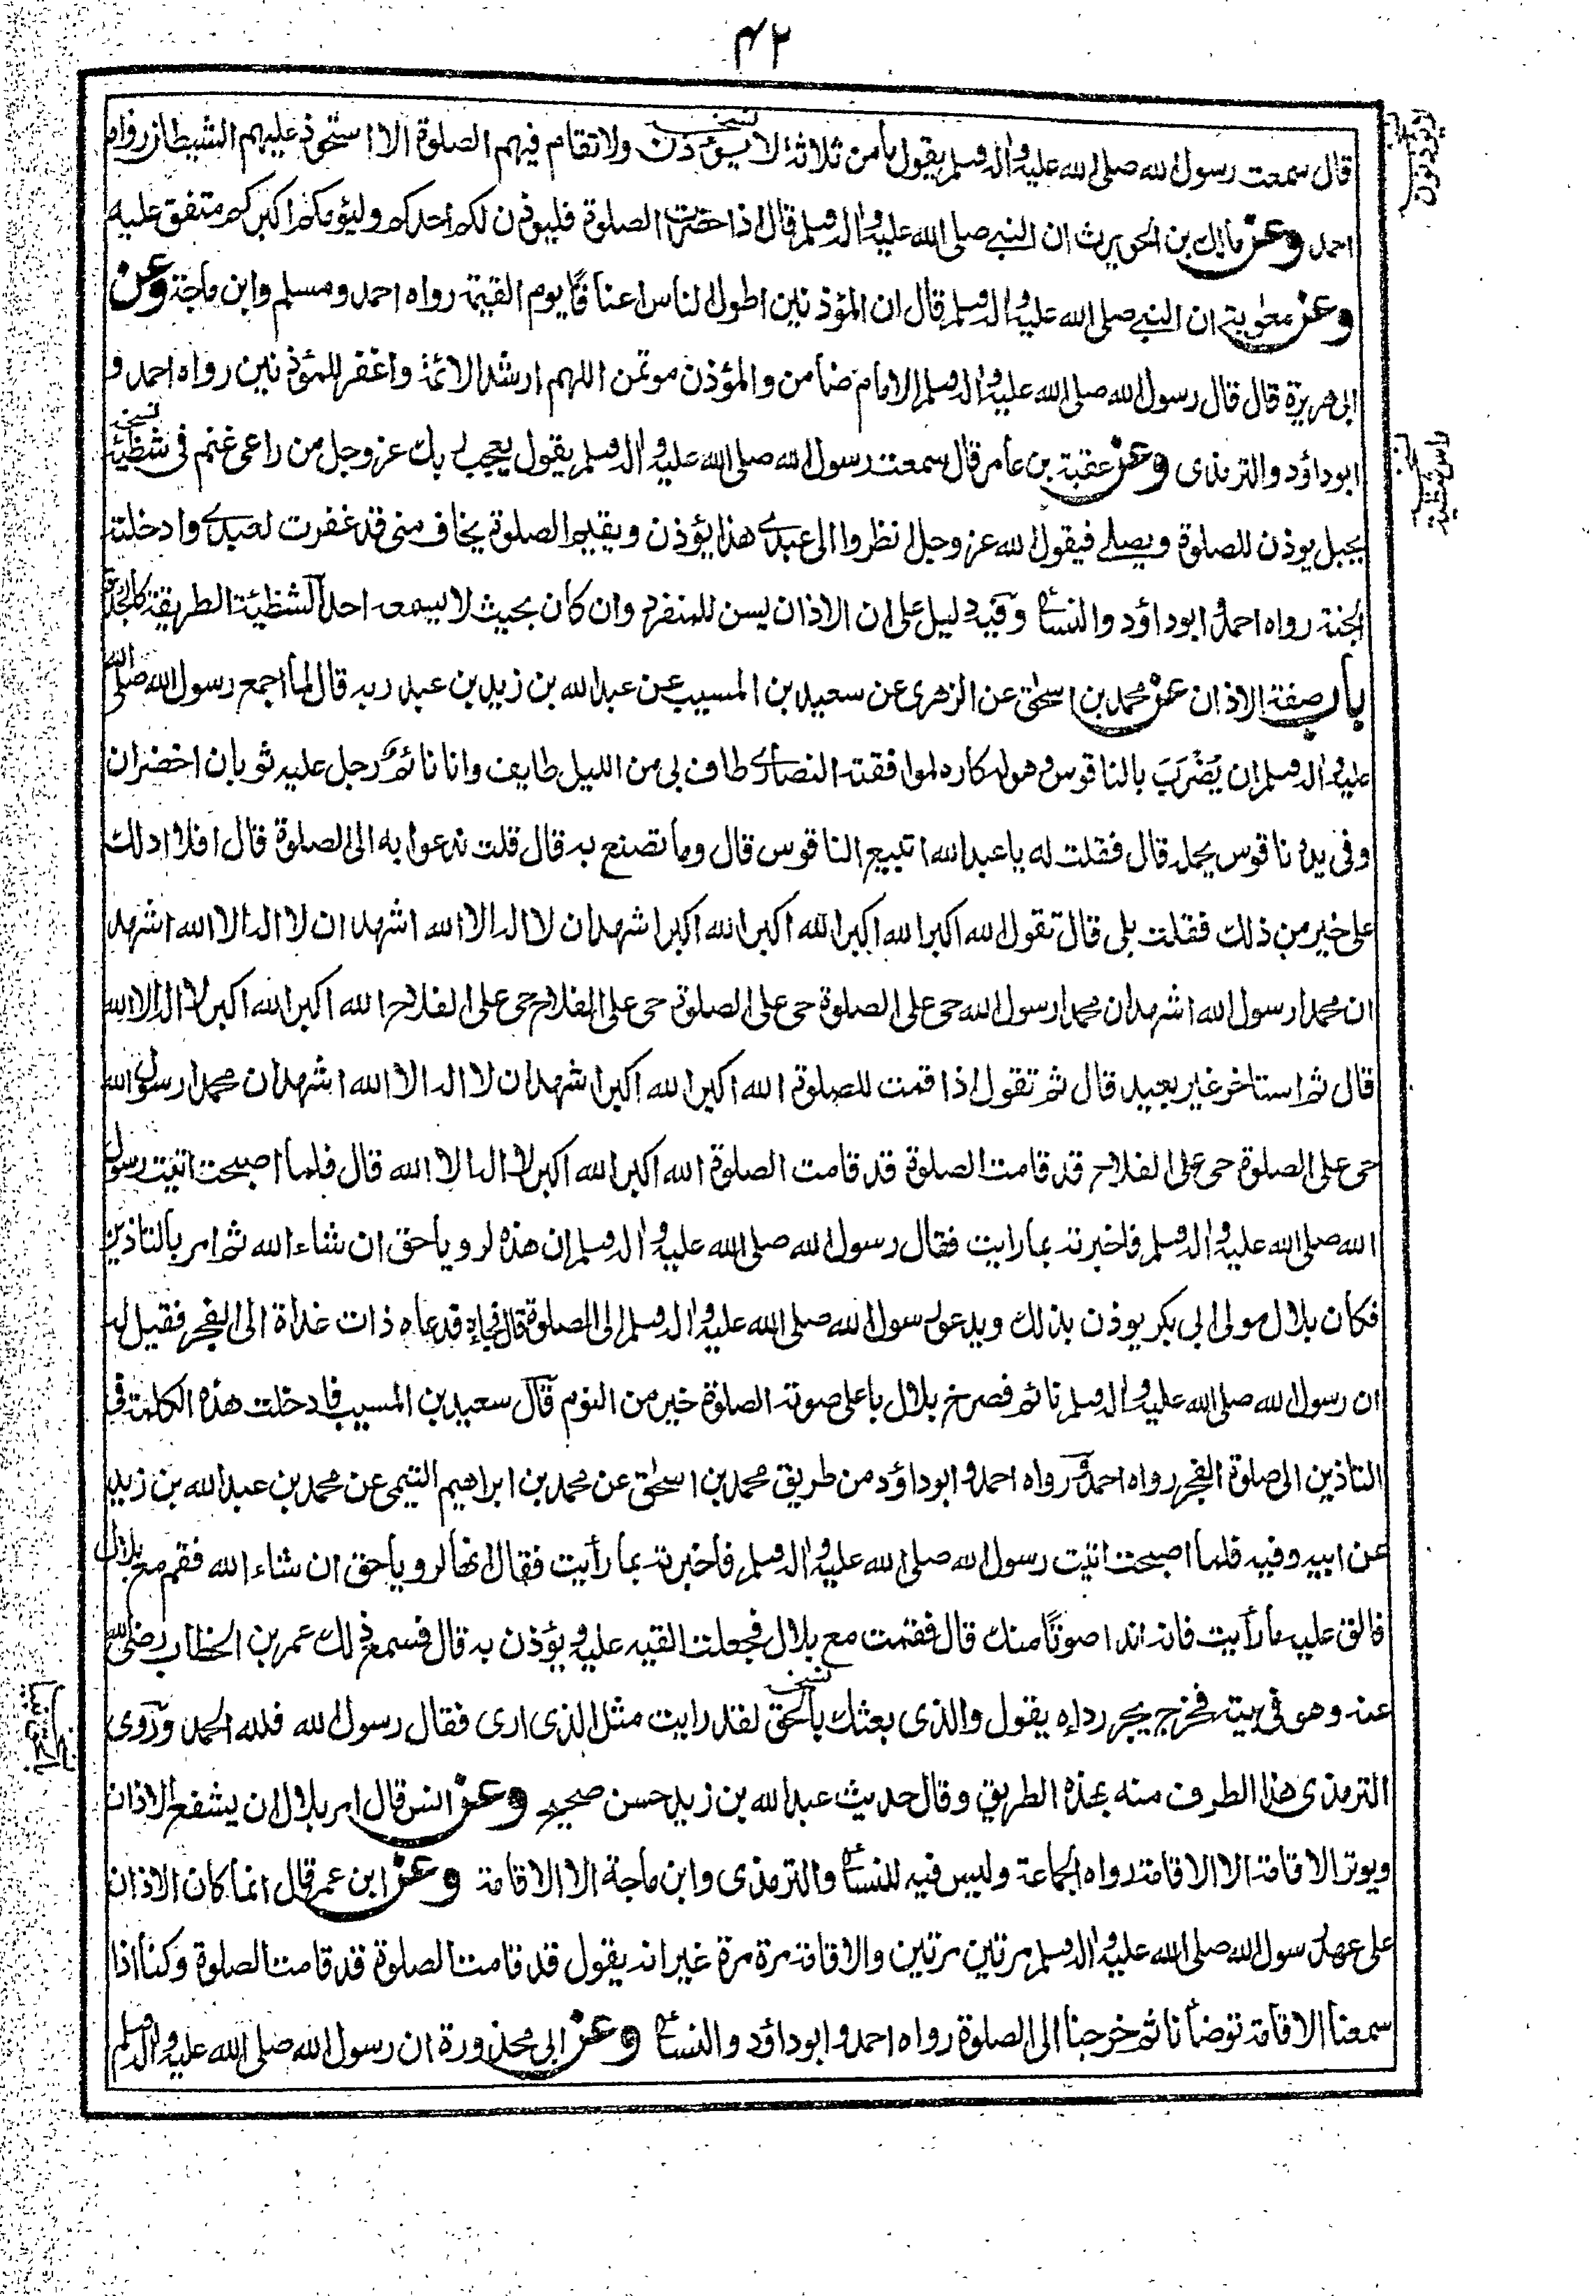 ٤٢
قال سمعت رسول الله صلى الله عليه واله وسلم يقول ما من ثلاثة لا يؤذن ولا تقام فيهم الصلوة الا استحوذ عليهم الشيطان رواه
احمد وعن مالك بن الحويرث ان النبي صلى الله عليه واله وسلم قال اذا حضرت الصلوة فليوذن لكم احدكم وليؤمكم اكبركم متفق عليه
وعن معوية ان النبي صلى الله عليه واله وسلم قال ان المؤذنين اطول الناس اعناقًا يوم القيمة رواه احمد ومسلم وابن ماجة وعن
ابى هريرة قال قال رسول الله صلى الله عليه واله وسلم الامام ضامن والمؤذن موتمن اللهم ارشد الائمة واغفر للمؤذنين رواه احمد و
ابوداؤد والترمذى وعن عقبة بن عامر قال سمعت رسول الله صلى الله عليه واله وسلم يقول يعجب ربك عزوجل من راعى غنم فى شظية
بجبل يوذن للصلوة ويصلے فيقول الله عزوجل انظروا الى عبدے هذا يؤذن ويقيم الصلوة يخاف منى قد غفرت لعبدے وادخلته
الجنة رواه احمد وابوداؤد والنسائى وفيه دليل على ان الاذان يسن للمنفرد وان كان بحيث لا يسمعه احد الشظيئة الطريقة كالجدة
باب صفة الاذان عن محمد بن اسحٰق عن الزهرى عن سعيد بن المسيب عن عبد الله بن زيد بن عبد ربه قال لما اجمع رسول الله صلى الله
عليه واله وسلم ان يَضْرِبَ بالناقوس وهو له كاره لموافقته النصارے طاف بى من الليل طايف وانا نائم رجل عليه ثوبان اخضران
وفى يده ناقوس يحمله قال فقلت له يا عبد الله اتبيع الناقوس قال وما تصنع به قال قلت ندعوا به الى الصلوة قال افلا ادلك
على خير من ذلك فقلت بلى قال تقول الله اكبر الله اكبر الله اكبر الله اكبر اشهد ان لا اله الا الله اشهد ان لا اله الا الله اشهد
ان محمدا رسول الله اشهد ان محمدا رسول الله حى على الصلوة حى على الصلوة حى على الفلاح حى على الفلاح الله اكبر الله اكبر لا اله الا الله
قال ثم استاخر غير بعيد قال ثم تقول اذا قمت للصلوة الله اكبر الله اكبر اشهد ان لا اله الا الله اشهد ان محمدا رسول الله
حى على الصلوة حى على الفلاح قد قامت الصلوة قد قامت الصلوة الله اكبر الله اكبر لا اله الا الله قال فلما اصبحت اتيت رسول
الله صلى الله عليه واله وسلم فاخبرته بما رايت فقال رسول الله صلى الله عليه واله وسلم ان هذه لرويا حق ان شاء الله ثم امر بالتاذين
فكان بلال مولى ابى بكر يوذن بذلك ويدعو رسول الله صلى الله عليه واله وسلم الى الصلوة قال فجاءه فدعاه ذات غداة الى الفجر فقيل له
ان رسول الله صلى الله عليه واله وسلم نائم فصرخ بلال باعلى صوته الصلوة خير من النوم قال سعيد بن المسيب فادخلت هذه الكلمة فى
التاذين الى صلوة الفجر رواه احمد رواه احمد وابوداؤد من طريق محمد بن اسحٰق عن محمد بن ابراهيم التيمى عن محمد بن عبد الله بن زيد
عن ابيه وفيه فلما اصبحت اتيت رسول الله صلى الله عليه واله وسلم فاخبرته بما رأيت فقال انها لرويا حق ان شاء الله فقم مع بلال
فالق عليه ما رأيت فانه اندا صوتًا منك قال فقمت مع بلال فجعلت القيه عليه ويؤذن به قال فسمع ذلك عمر بن الخطاب رضى الله
عنه وهو فى بيته فخرج يجر رداءه يقول والذى بعثك بالحق لقد رايت مثل الذى ارى فقال رسول الله فلله الحمد وروى
الترمذى هذا الطرف منه بهذه الطريق وقال حديث عبد الله بن زيد حسن صحيح وعن انس قال امر بلال ان يشفع الاذان
ويوتر الاقامة الا الاقامة رواه الجماعة وليس فيه للنسائى والترمذى وابن ماجة الا الاقامة وعن ابن عمر قال انما كان الاذان
على عهد رسول الله صلى الله عليه واله وسلم مرتين مرتين والاقامة مرة مرة غير انه يقول قد قامت الصلوة قد قامت الصلوة وكنا اذا
سمعنا الاقامة توضأنا ثم خرجنا الى الصلوة رواه احمد وابوداؤد والنسائى وعن ابى محذورة ان رسول الله صلى الله عليه واله وسلم